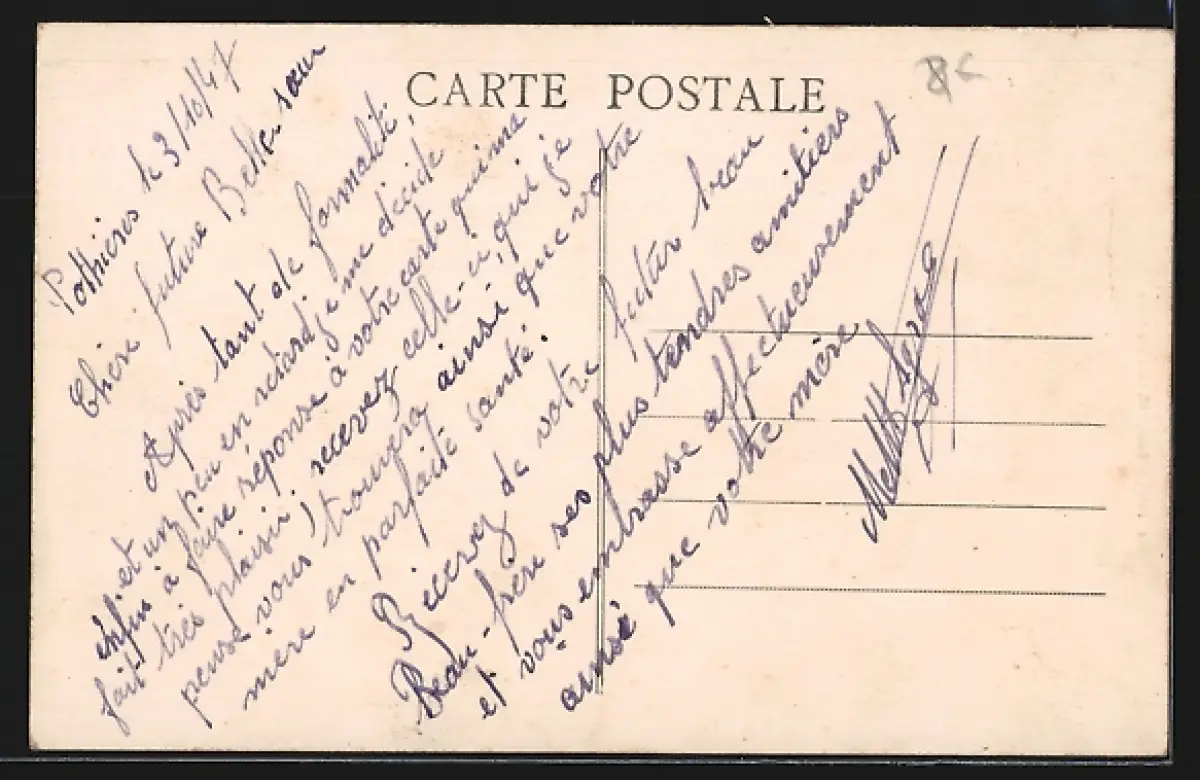 CARTE POSTALE
Pothières le 3/10/47
Chère future Belle-sœur
Après tant de formalité,
et un peu en retard je me décide
enfin à faire réponse à votre carte qui me
fait très plaisir, recevez celle-ci, qui je
pense vous trouvera ainsi que votre
mère en parfaite santé.
Recevez de votre futur beau
Beau-frère ses plus tendres amitiers
et vous embrasse affectueusement
ainsi que votre mère